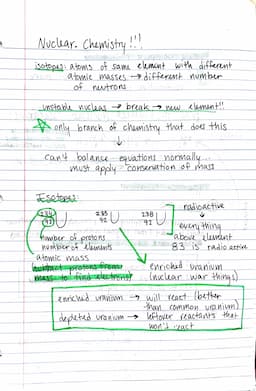 Nuclear Chemistry!!!
isotopes: atoms of same element with different
atomic masses → different number
of neutrons
unstable nucleus → break → new element!!
☆ only branch of chemistry that does this
↓
can't balance equations normally
must apply conservation of mass
Isotopes:
234 92 U 235 92 U 238 92 U
radioactive
↓
everything
above element
83 is radioactive
number of protons
number of elements
atomic mass
subtract protons from
mass to find electrons
enriched uranium
(nuclear war things)
enriched uranium → will react (better
than common uranium)
depleted uranium → leftover reactants that
won't react